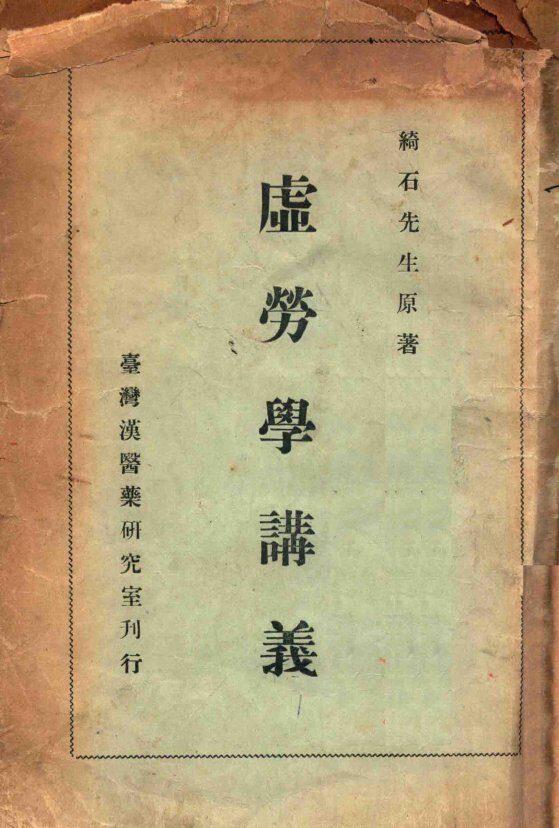 綺石先生原著
虛勞學講義
臺灣漢醫藥研究室刊行